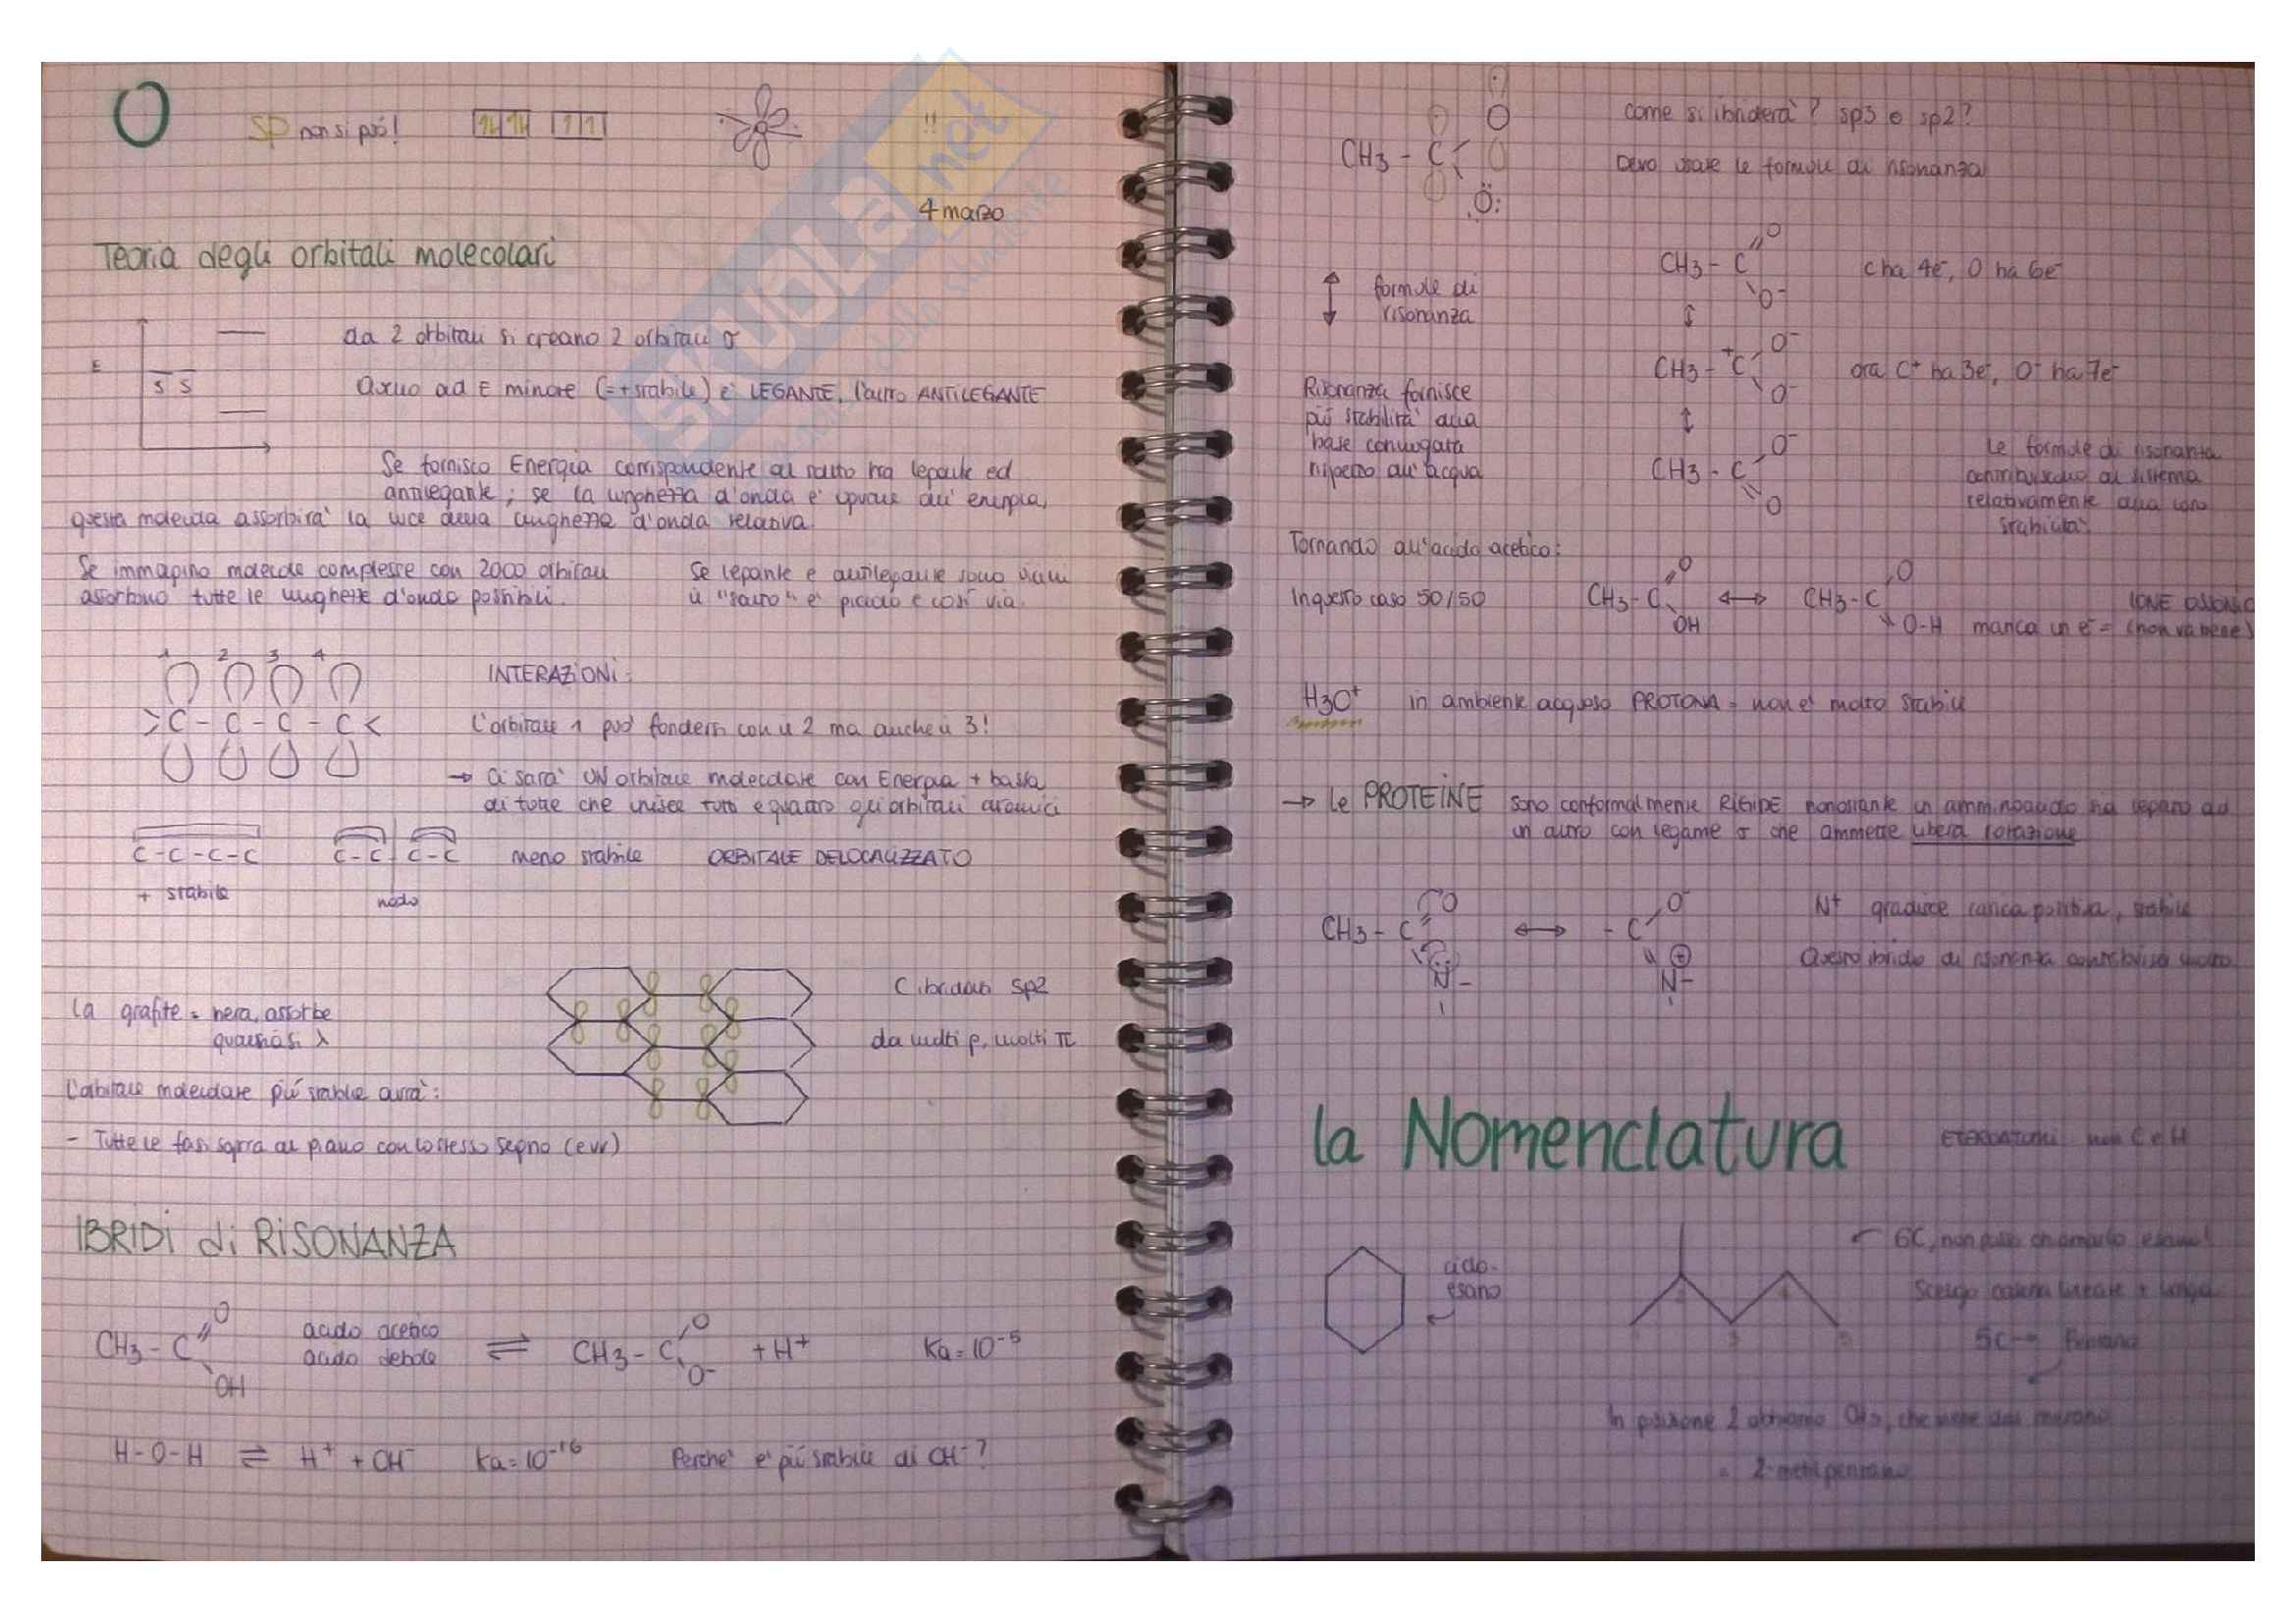 O
SP non si può!
!!
4 marzo
Teoria degli orbitali molecolari
E
S S
da 2 orbitali si creano 2 orbitali σ
Quello ad E minore (=+stabile) è LEGANTE, l'altro ANTILEGANTE
Se fornisco Energia corrispondente al salto tra legante ed
antilegante; se la lunghezza d'onda è uguale all'energia,
questa molecola assorbirà la luce della lunghezza d'onda relativa.
Se immagino molecole complesse con 2000 orbitali
assorbono tutte le lunghezze d'onda possibili.
Se legante e antilegante sono vicini
il "salto" è piccolo e così via.
1 2 3 4
>C - C - C - C<
INTERAZIONI:
L'orbitale 1 può fondersi con il 2 ma anche il 3!
→ Ci sarà UN orbitale molecolare con Energia + bassa
di tutte che unisce tutti e quattro gli orbitali atomici
C-C-C-C
C-C C-C
meno stabile
ORBITALE DELOCALIZZATO
+ stabile
nodo
La grafite = nera, assorbe
qualsiasi λ
C ibridato sp2
da molti p, molti π
L'orbitale molecolare più stabile avrà:
- Tutte le fasi sopra al piano con lo stesso segno (e vv)
IBRIDI di RISONANZA
CH3 - C O OH
acido acetico
acido debole
⇌ CH3 - C O O- + H+
Ka = 10-5
H-O-H ⇌ H+ + OH-
Ka = 10-16
Perché è più stabile di OH-?
CH3 - C O Ö:
come si ibriderà? sp3 o sp2?
Devo usare le formule di risonanza
↕ formule di
risonanza
CH3 - C O O-
C ha 4e-, O ha 6e-
↕
CH3 - +C O- O-
ora C+ ha 3e-, O- ha 7e-
↕
CH3 - C O- O
Risonanza fornisce
più stabilità alla
base coniugata
rispetto all'acqua
Le formule di risonanza
contribuiscono al sistema
relativamente alla loro
stabilità.
Tornando all'acido acetico:
In questo caso 50/50
CH3 - C O OH ↔ CH3 - C O O-H
IONE OSSONIO
manca un e- = (non va bene)
H3O+ in ambiente acquoso PROTONA = non è molto stabile
→ Le PROTEINE sono conformalmente RIGIDE nonostante un amminoacido sia legato ad
un altro con legame σ che ammette libera rotazione
CH3 - C O N - ↔ - C O- ⊕ N -
N+ gradisce carica positiva, stabile
Questo ibrido di risonanza contribuisce molto
la Nomenclatura
ETEROATOMI non C e H
ciclo-
esano
6C, non posso chiamarlo esano!
Scelgo catena lineare + lunga
2 3 4 5
5C → Pentano
In posizione 2 abbiamo CH3, che viene dal metano
= 2-metilpentano